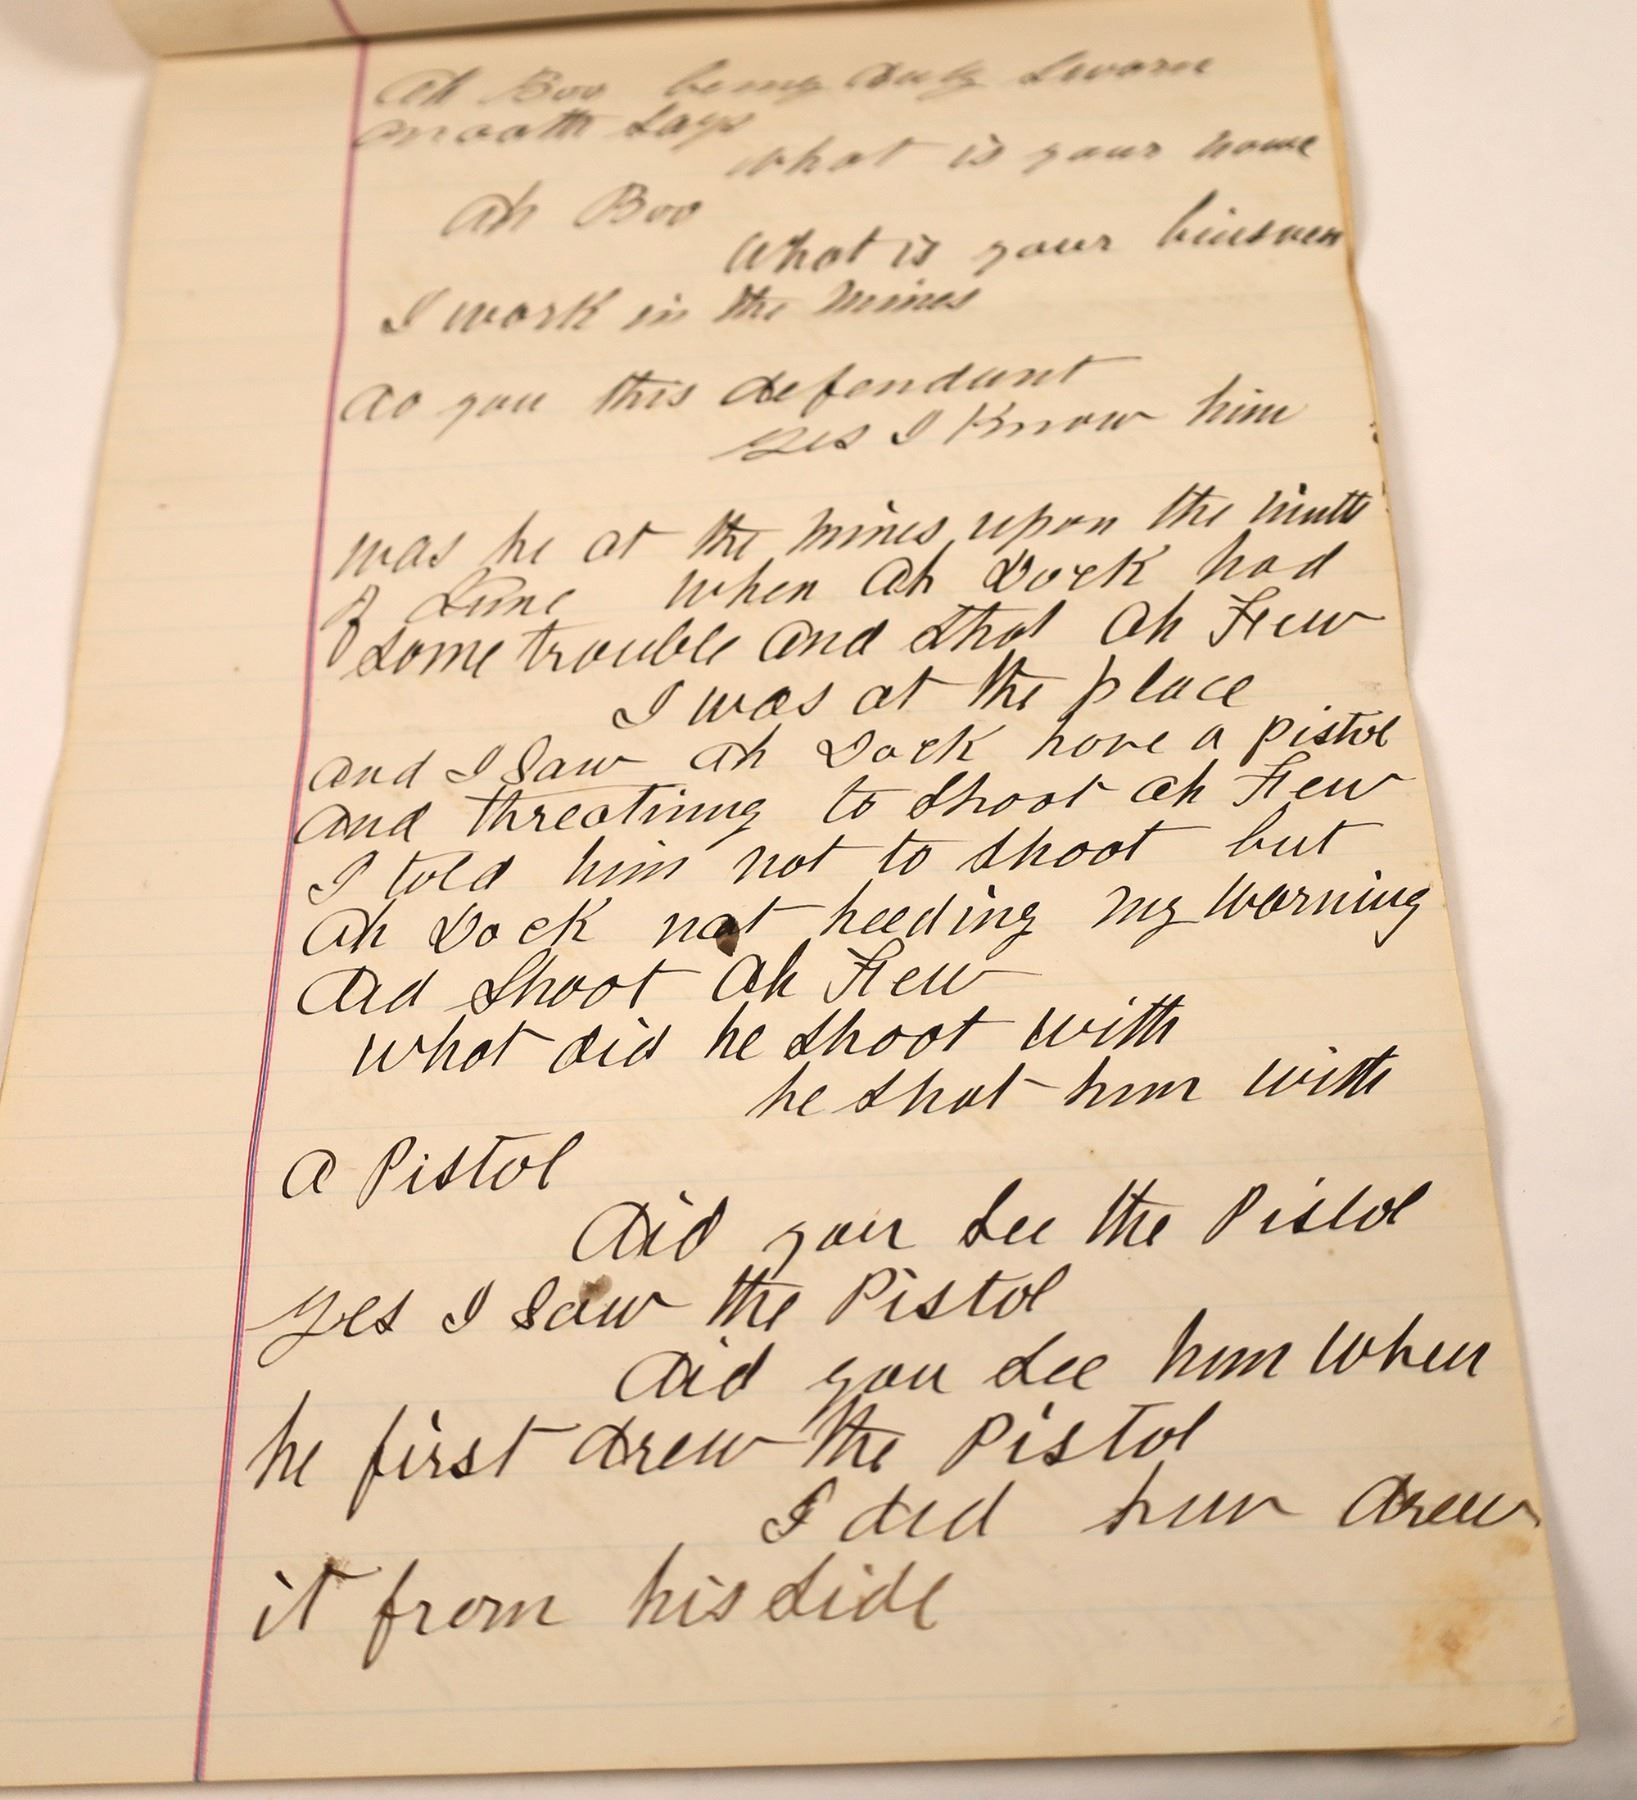 Ah Boo being duly sworn
on oath says
What is your name
Ah Boo
What is your buisness
I work in the mines
do you this defendant
yes I Know him
was he at the mines upon the ninth
of June when Ah Dock had
some trouble and shot Ah Flew
I was at the place
and I Saw Ah Dock have a pistol
and threatinng to shoot Ah Flew
I told him not to shoot but
Ah Dock not heeding my Warning
did shoot Ah Flew
what did he shoot with
he shot him with
a Pistol
did you see the Pistol
yes I Saw the Pistol
did you see him When
he first drew the Pistol
I did him drew
it from his side